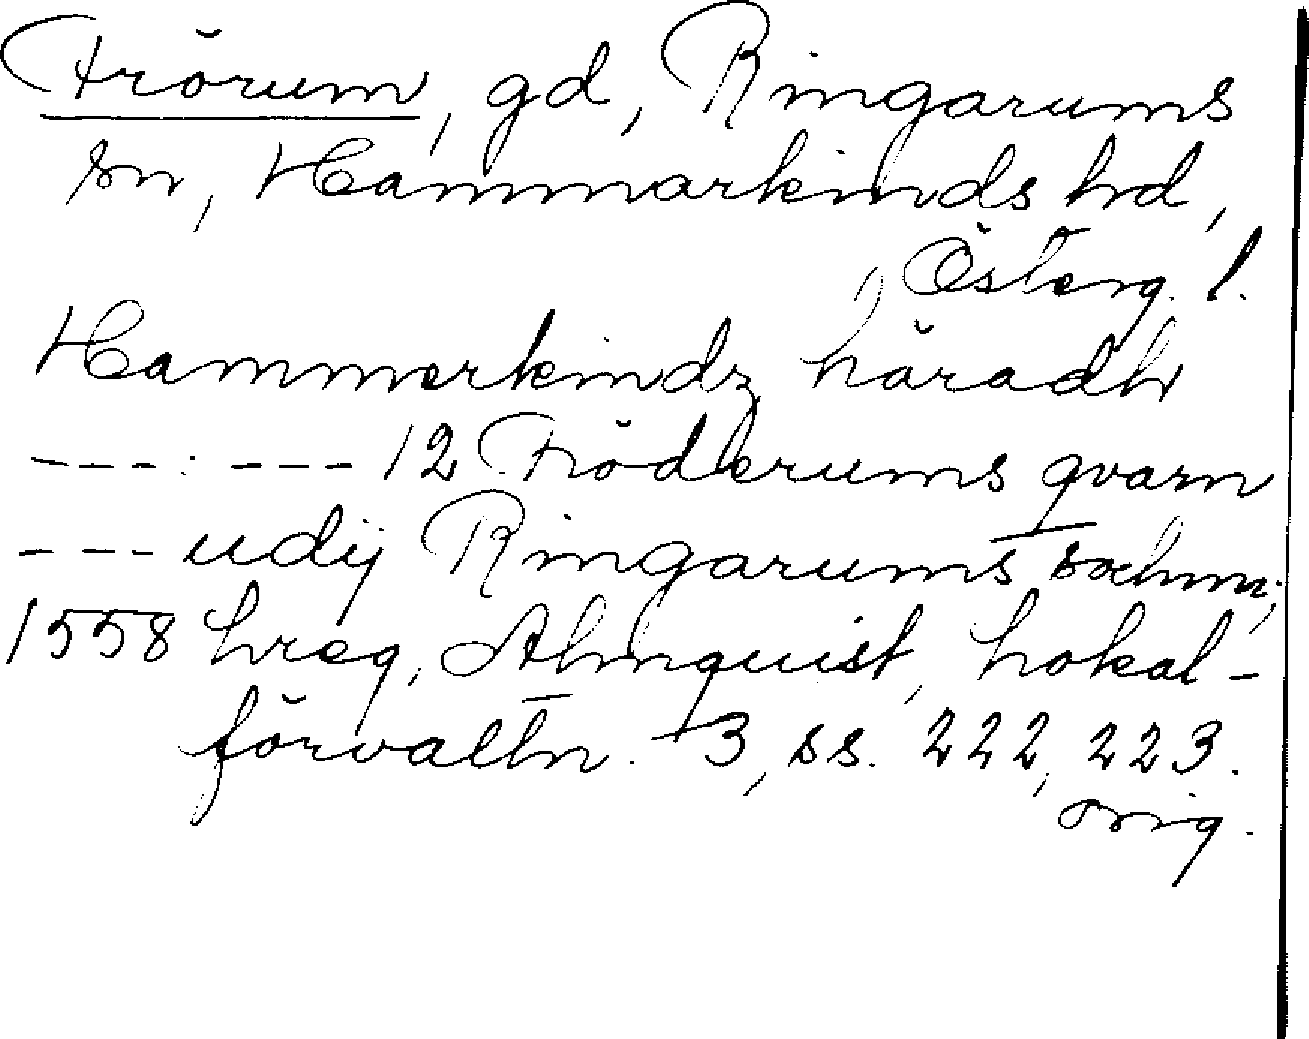 Frörum, gd, Ringarums
sn, Hammarkinds hd,
Österg. l.
Hammerkindz häradh
---:--- 12 Fröderums qvarn
--- udij Ringarums sochnn;
1558 hreg, Almquist, Lokal-
förvaltn. 3, ss. 222, 223.
orig.